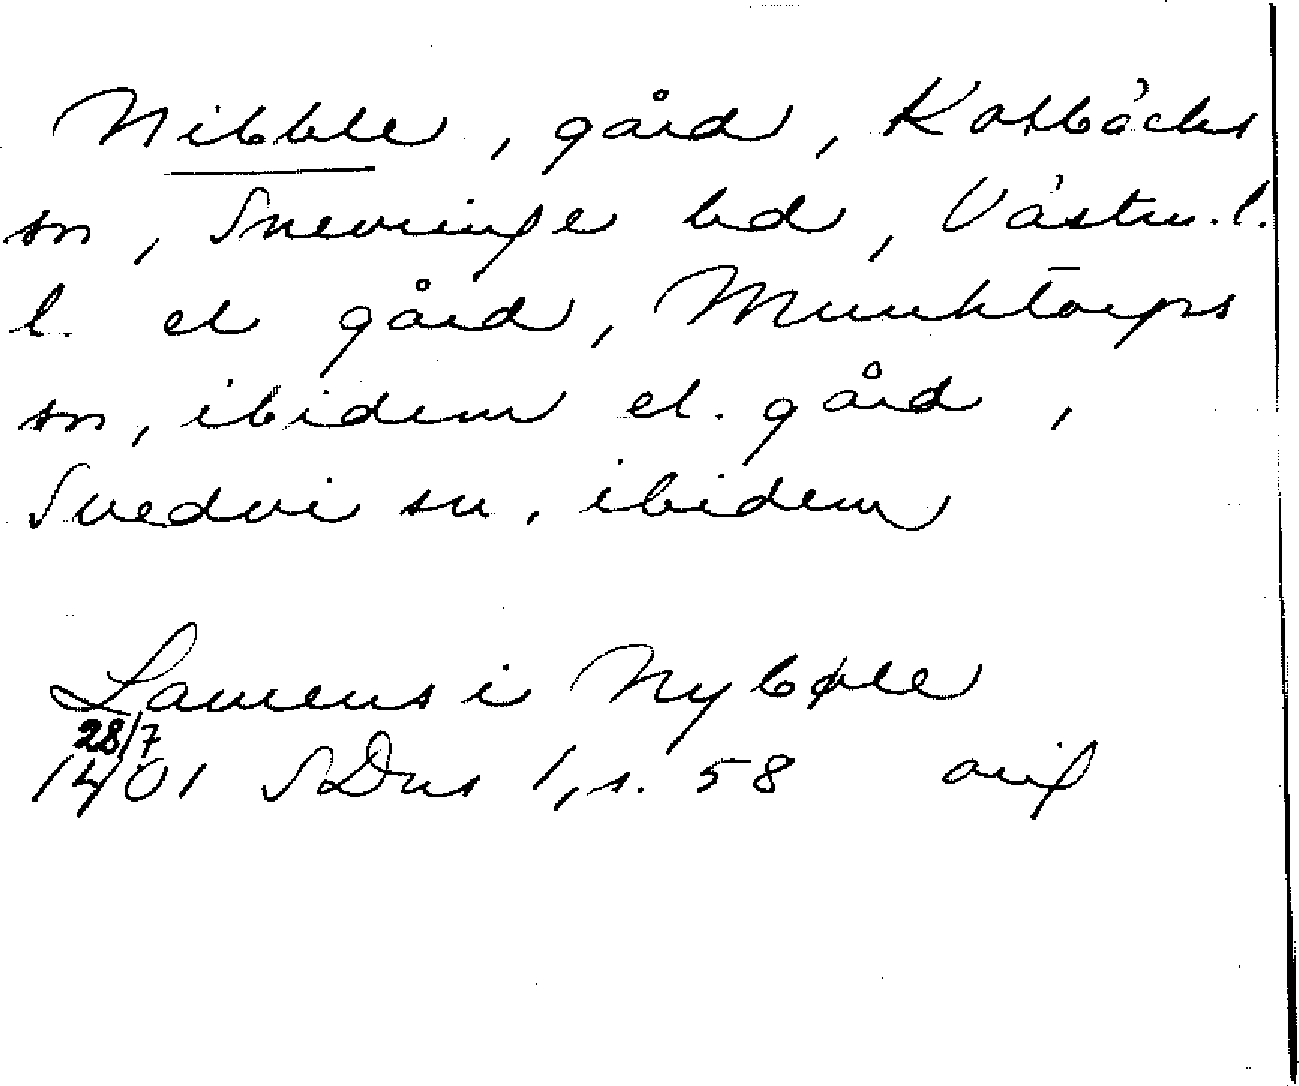 Nibble, gård, Kolbäcks
sn, Snevringe hd, Västm. l.
l. el gård, Munktorps
sn, ibidem el. gård,
Svedvi sn, ibidem
Laurens i Nybøle
28/7
1401 SDns 1, s. 58 orig